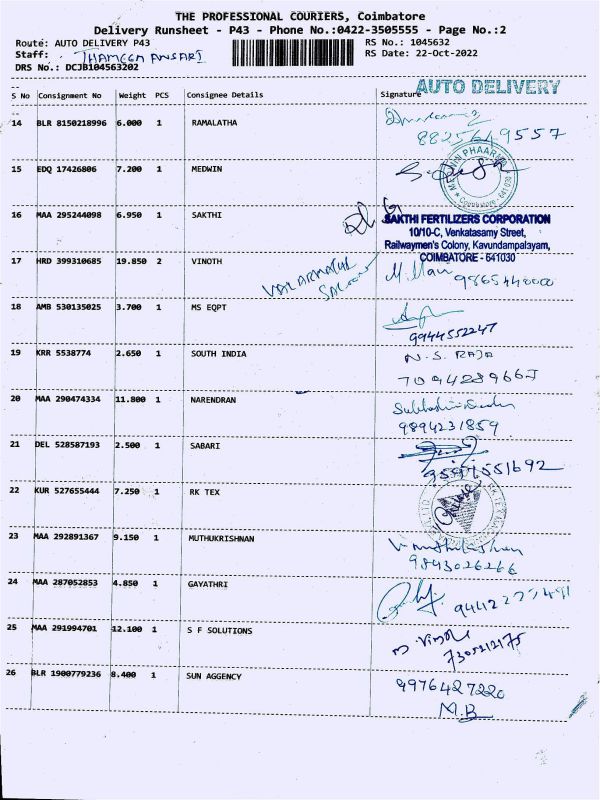 THE PROFESSIONAL COURIERS, Coimbatore
Delivery Runsheet - P43 - Phone No.:0422-3505555 - Page No.:2
Route: AUTO DELIVERY P43
RS No.: 1045632
Staff: . THAMEEM ANSARI
RS Date: 22-Oct-2022
DRS No.: DCJB104563202
AUTO DELIVERY
S No Consignment No Weight PCS Consignee Details Signature
14 BLR 8150218996 6.000 1 RAMALATHA
8825649557
15 EDQ 17426806 7.200 1 MEDWIN
MEDWIN PHAARMA
Coimbatore - 641 030
16 MAA 295244098 6.950 1 SAKTHI
SAKTHI FERTILIZERS CORPORATION
10/10-C, Venkatasamy Street,
Railwaymen's Colony, Kavundampalayam,
COIMBATORE - 641030
17 HRD 399310685 19.850 2 VINOTH
VALARMATHI
SALOON
M. Mani
9865440000
18 AMB 530135025 3.700 1 MS EQPT
9944552247
19 KRR 5538774 2.650 1 SOUTH INDIA
N.S. RAJA
7094289665
20 MAA 290474334 11.800 1 NARENDRAN
9894231859
21 DEL 528587193 2.500 1 SABARI
9597551692
22 KUR 527655444 7.250 1 RK TEX
RK TEX
23 MAA 292891367 9.150 1 MUTHUKRISHNAN
V Muthukrishnan
9843026266
24 MAA 287052853 4.850 1 GAYATHRI
9442277491
25 MAA 291994701 12.100 1 S F SOLUTIONS
7305212175
26 BLR 1900779236 8.400 1 SUN AGGENCY
9976427220
M.B